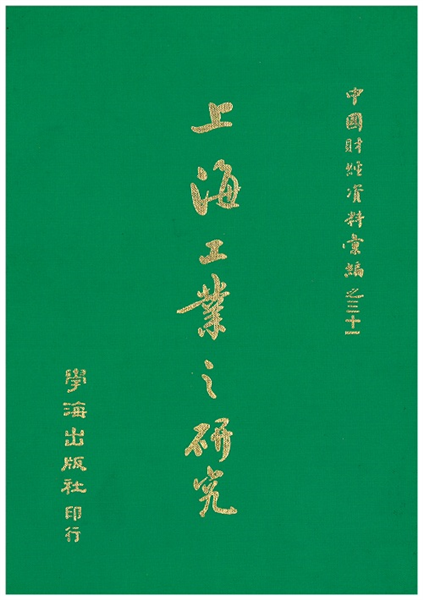 中國財經資料彙編之三十一
上海工業之研究
學海出版社印行